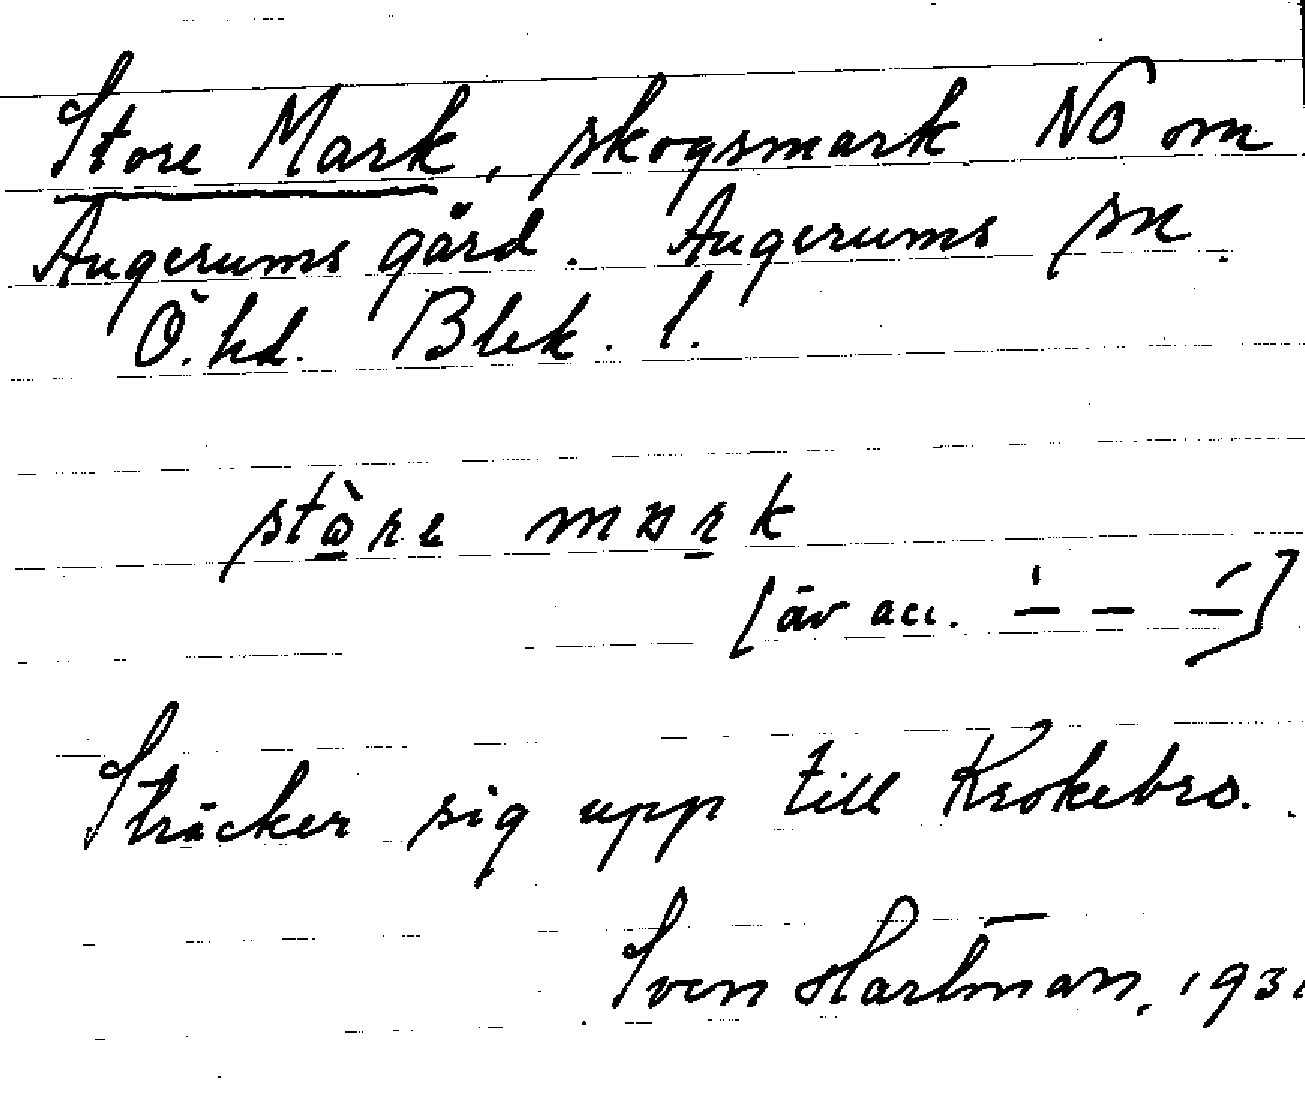 Store Mark, skogsmark NO om
Augerums gård. Augerums sn.
Ö. hd. Blek. l.
mark
[äv acc.
Sträcker sig upp till Krokebro.
Sven Hartman, 193